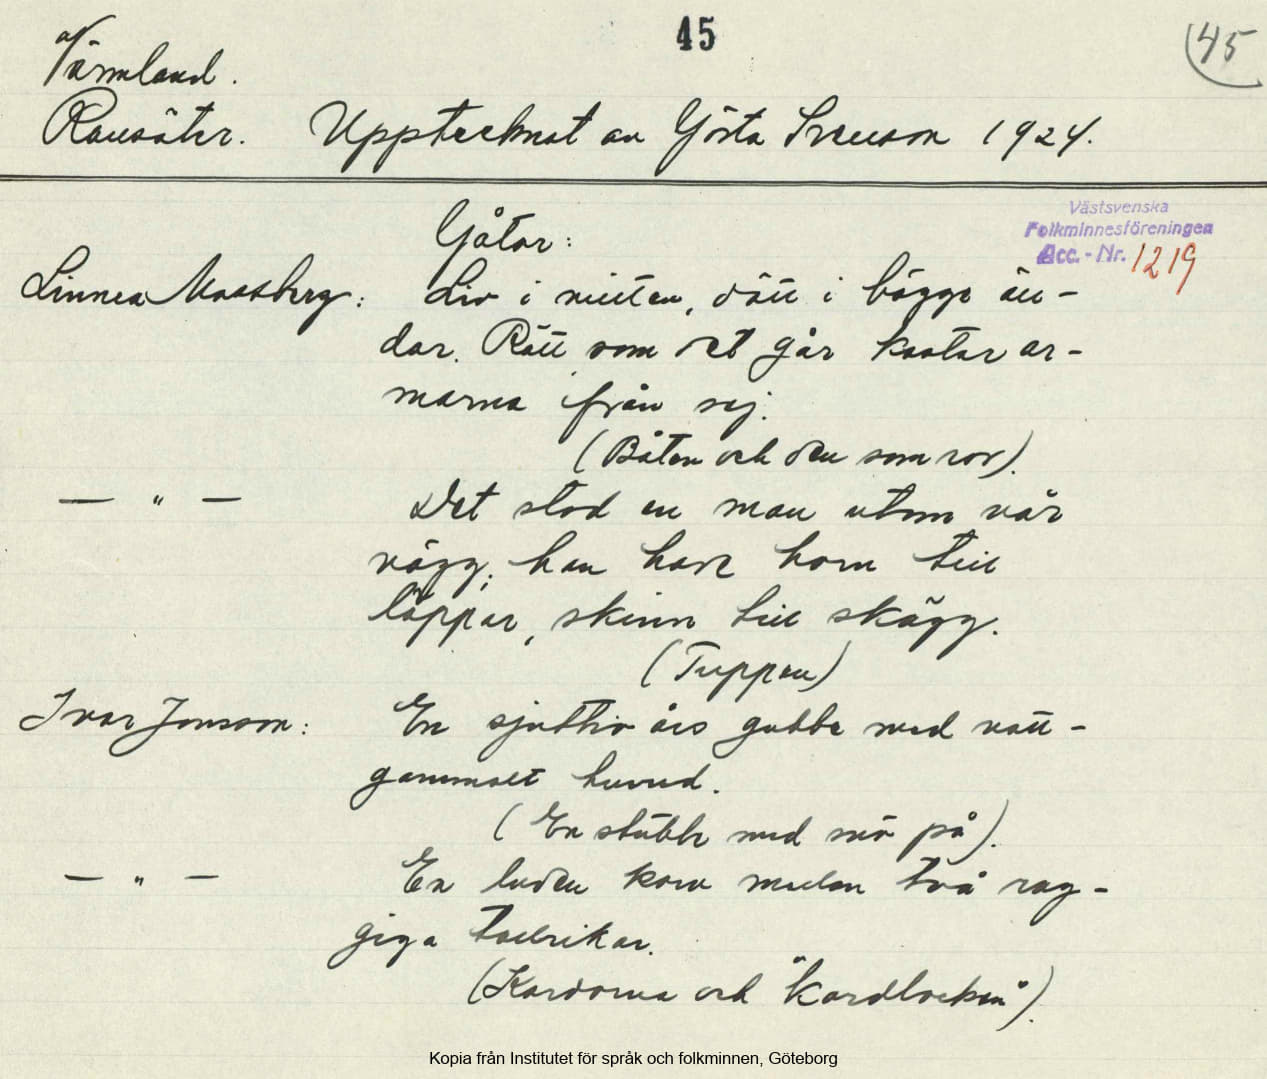 45
45
Värmland.
Ransäter. Upptecknat av Gösta Svenson 1924.
Västsvenska
Folkminnesföreningen
Acc.-Nr. 1219
Gåtor:
Linnea Mossberg: Liv i mitten, dött i bägge än-
dar. Rätt som det går kastar ar-
marna från sej.
(Båten och den som ror).
— " — Det stod en man utom vår
vägg; han hade horn till
läppar, skinn till skägg.
(Tuppen)
Ivar Jonsson: En sjuttio års gubbe med natt-
gammalt huvud.
(En stubbe med snö på).
— " — En luden kom mellan två rag-
giga
(Kardorna och "kardlocken").
Kopia från Institutet för språk och folkminnen, Göteborg